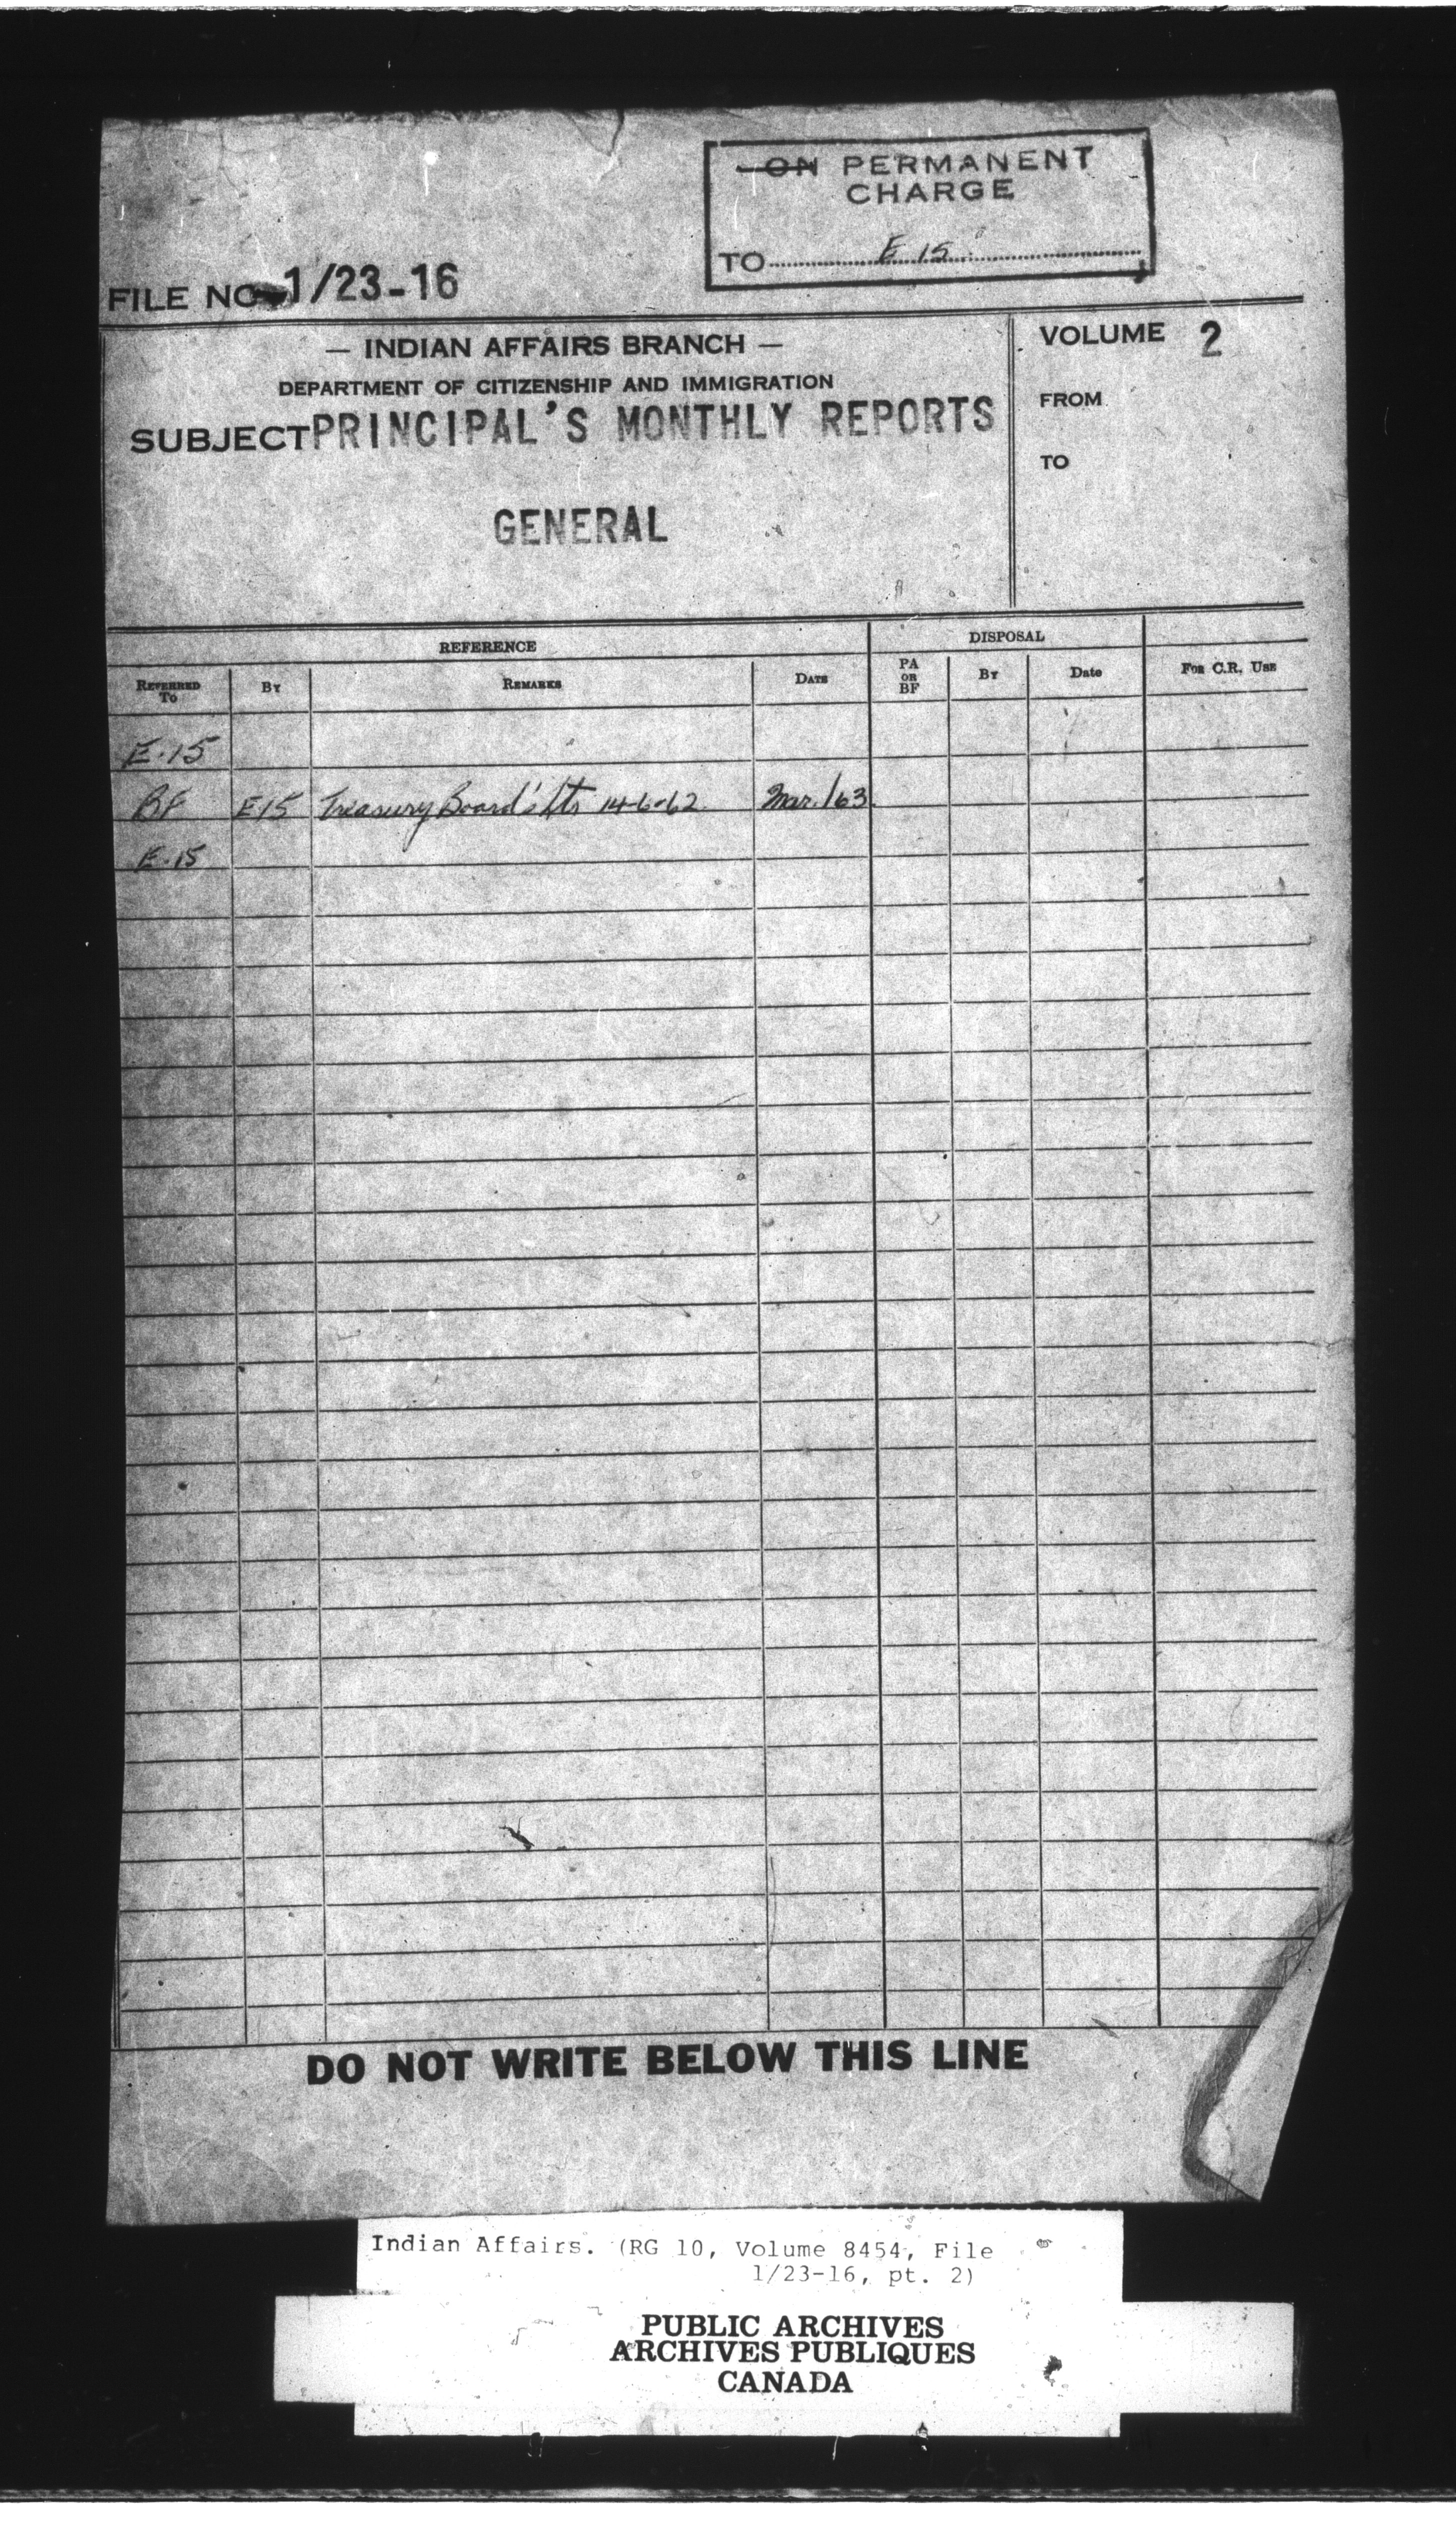 ON PERMANENT
CHARGE
TO E 15
FILE NO 1/23-16
— INDIAN AFFAIRS BRANCH —
DEPARTMENT OF CITIZENSHIP AND IMMIGRATION
SUBJECT PRINCIPAL'S MONTHLY REPORTS
GENERAL
VOLUME 2
FROM
TO
REFERENCE DISPOSAL
REFERRED TO BY REMARKS DATE PA OR BF BY Date FOR C.R. USE
E.15
BF E15 Treasury Board's ltr 14-6-62 Mar./63
E.15
DO NOT WRITE BELOW THIS LINE
Indian Affairs. (RG 10, Volume 8454, File
1/23-16, pt. 2)
PUBLIC ARCHIVES
ARCHIVES PUBLIQUES
CANADA